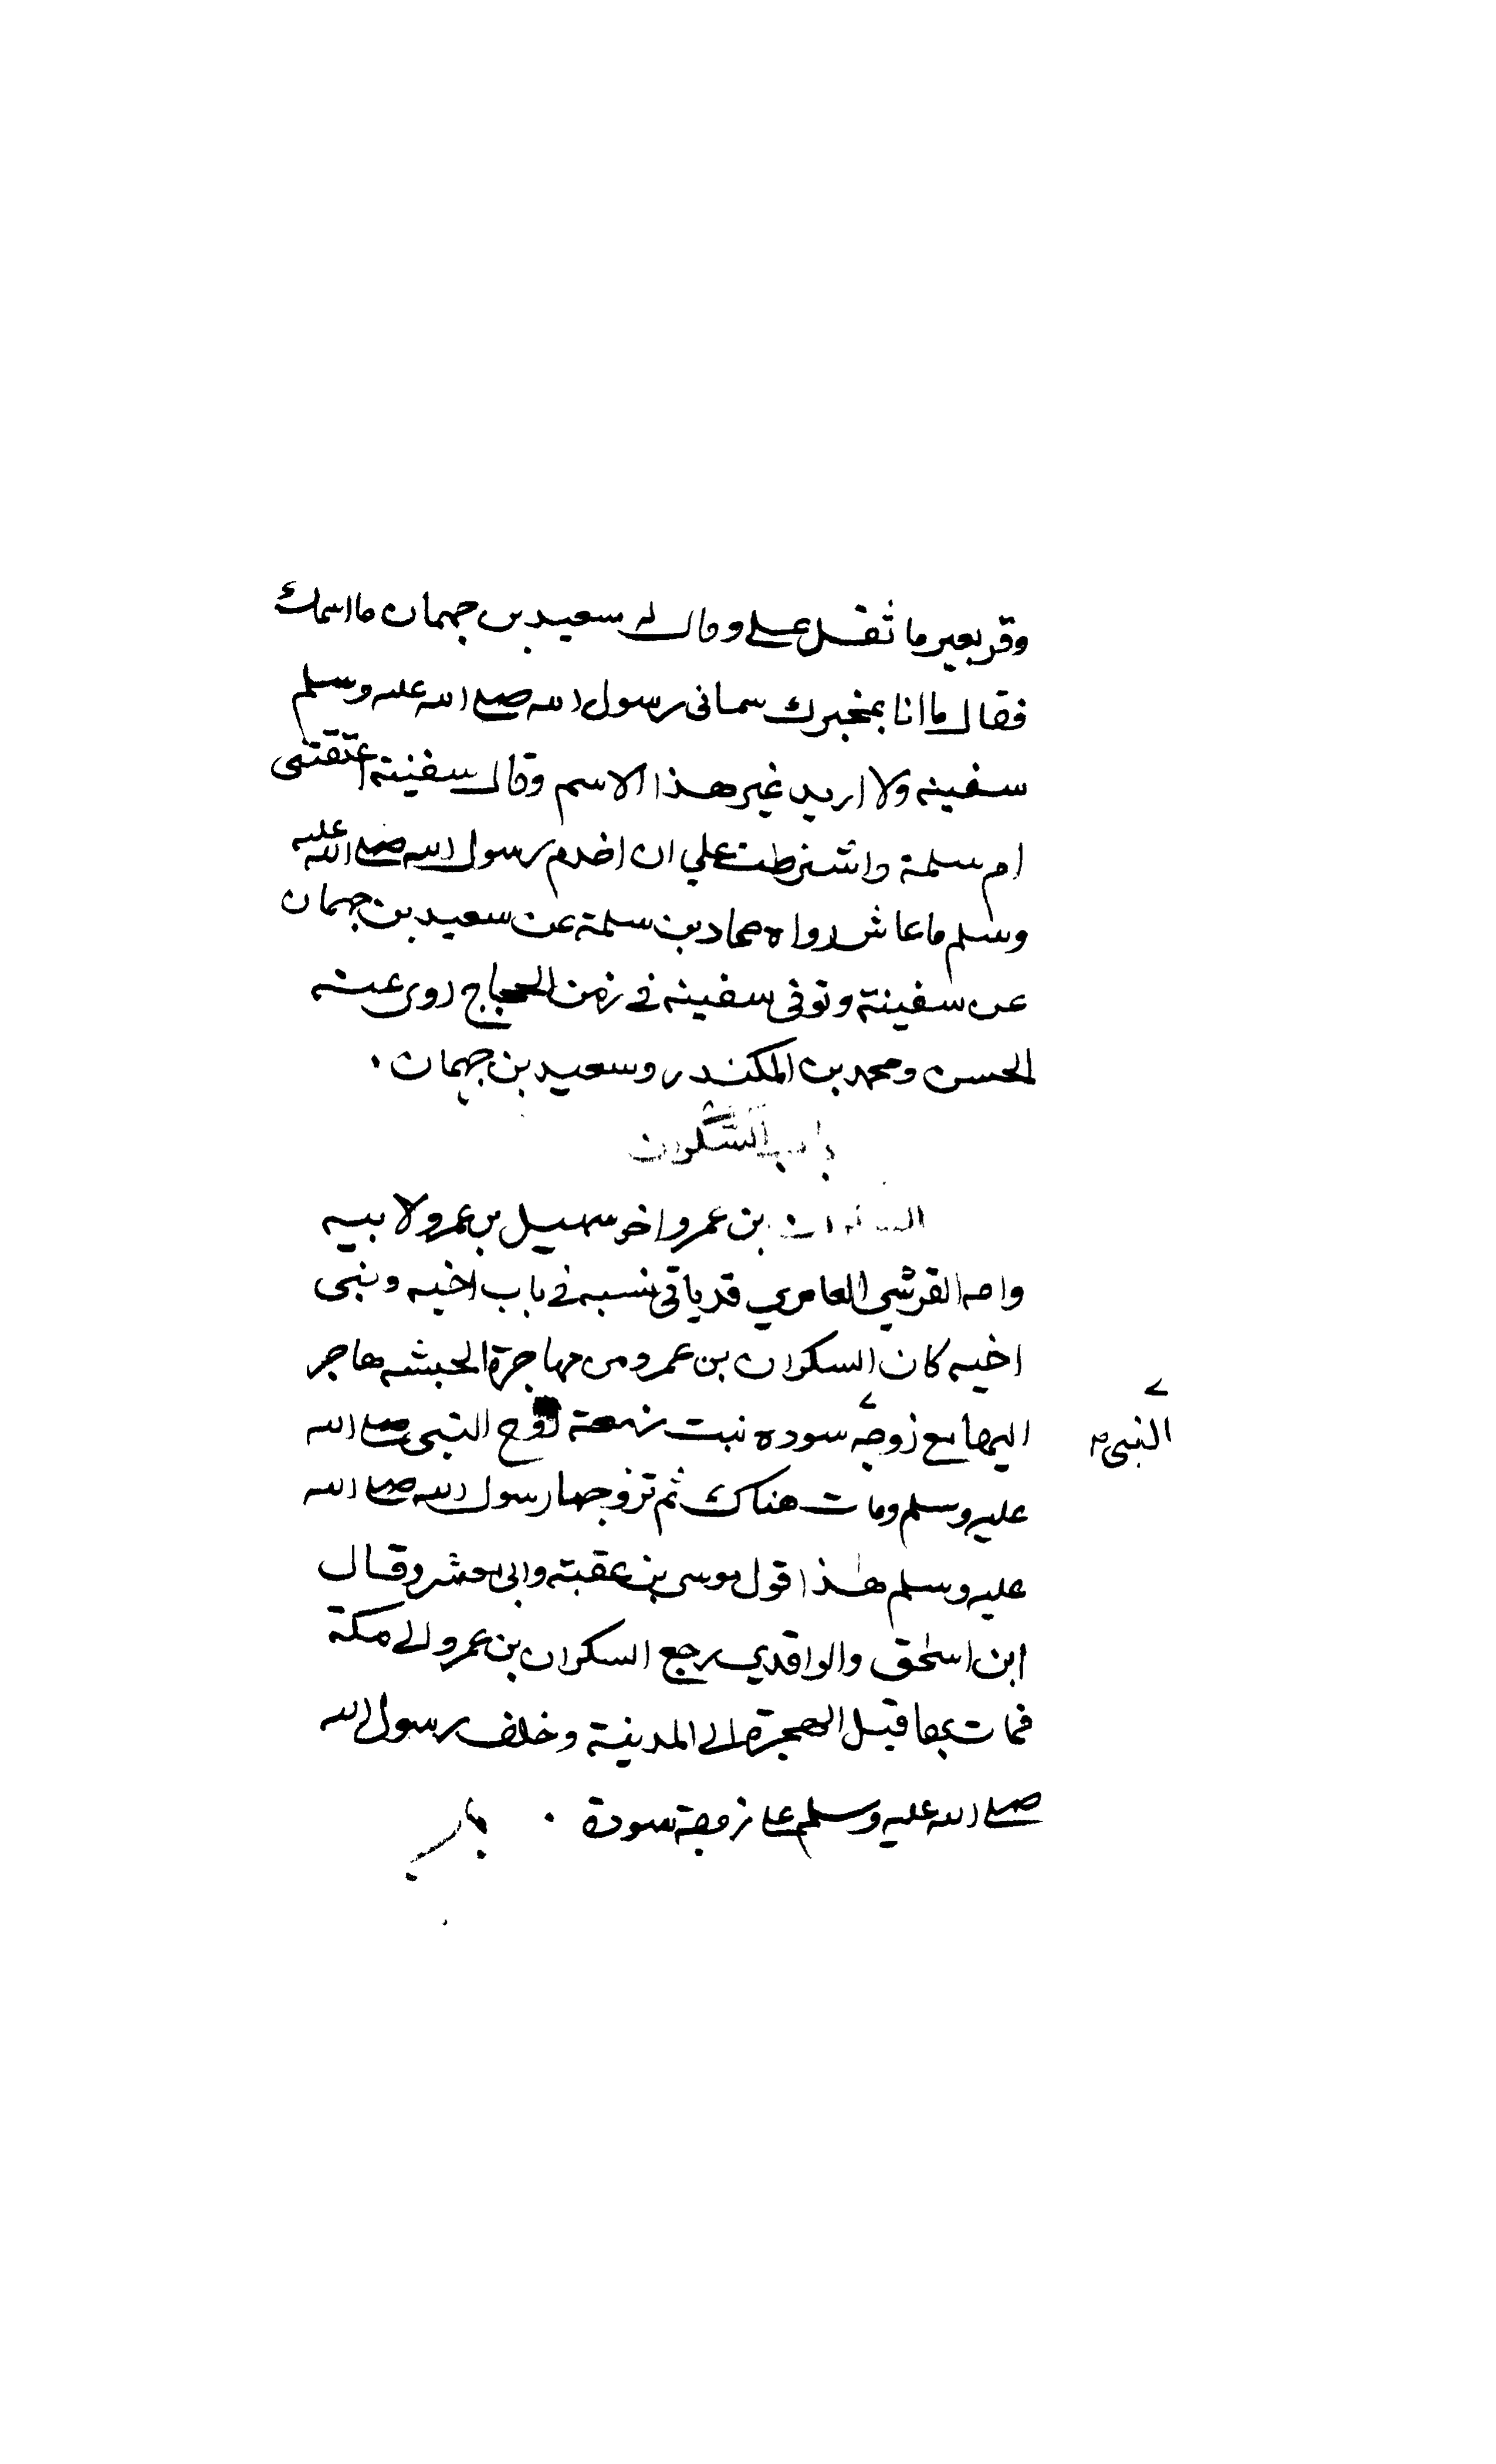 وقر بعير ما ثقل علي وقال له سعيد بن جمهان ما اسمك
فقال ما انا بمخبرك سماني رسول الله صلى الله عليه وسلم
سفينه ولا اريد غير هذا الاسم وقال سفينة اعتقتنى
ام سلمة واشترطت علي ان اخدم رسول الله صلى الله عليه
وسلم ما عاش رواه حماد بن سلمة عن سعيد بن جمهان
عن سفينة وتوفى سفينه في زمن الحجاج روى عنه
الحسن ومحمد بن المكندر وسعيد بن جهمان .
باب السكران
السكران بن عمرو اخو سهيل بن عمرو لابيه
وامه القرشي العامري قد ياتي نسبه في باب اخيه وبنى
اخيه كان السكران بن عمرو من مهاجرة الحبشه هاجر
اليها مع زوجه سوده بنت زمعة زوج النبى صلى الله
النبى
عليه وسلم ومات هناك ثم تزوجها رسول الله صلى الله
عليه وسلم هذا قول موسى بن عقبة وابى معشر وقال
ابن اسحق والواقدي رجع السكران بن عمرو الى مكة
فمات بها قبل الهجرة الى المدينة وخلف رسول الله
صلى الله عليه وسلم على زوجة سودة . باب